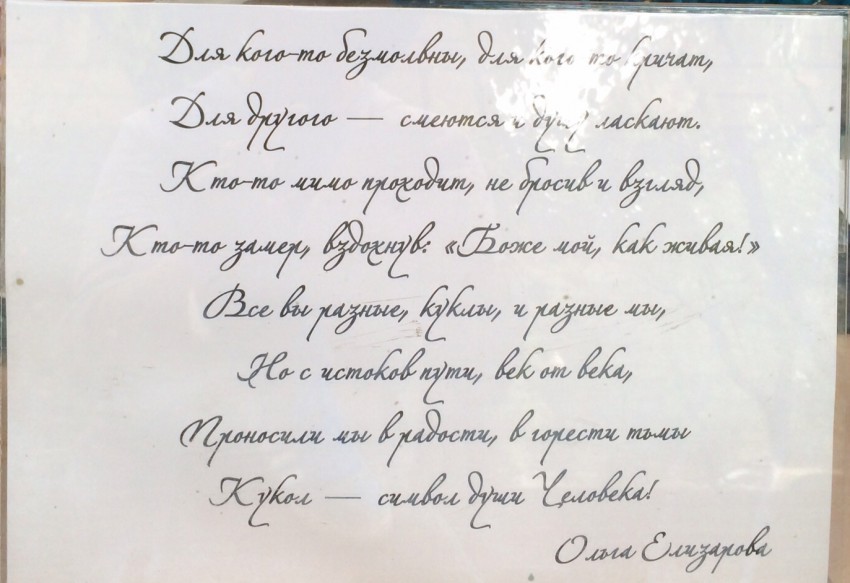 Для кого-то безмолвны, для кого-то кричат,
Для другого — смеются и душу ласкают.
Кто-то мимо проходит, не бросив и взгляд,
Кто-то замер, вздохнув: «Боже мой, как живая!»
Все вы разные, куклы, и разные мы,
Но с истоков пути, век от века,
Проносили мы в радости, в горести тьмы
Кукол — символ души Человека!
Ольга Елизарова